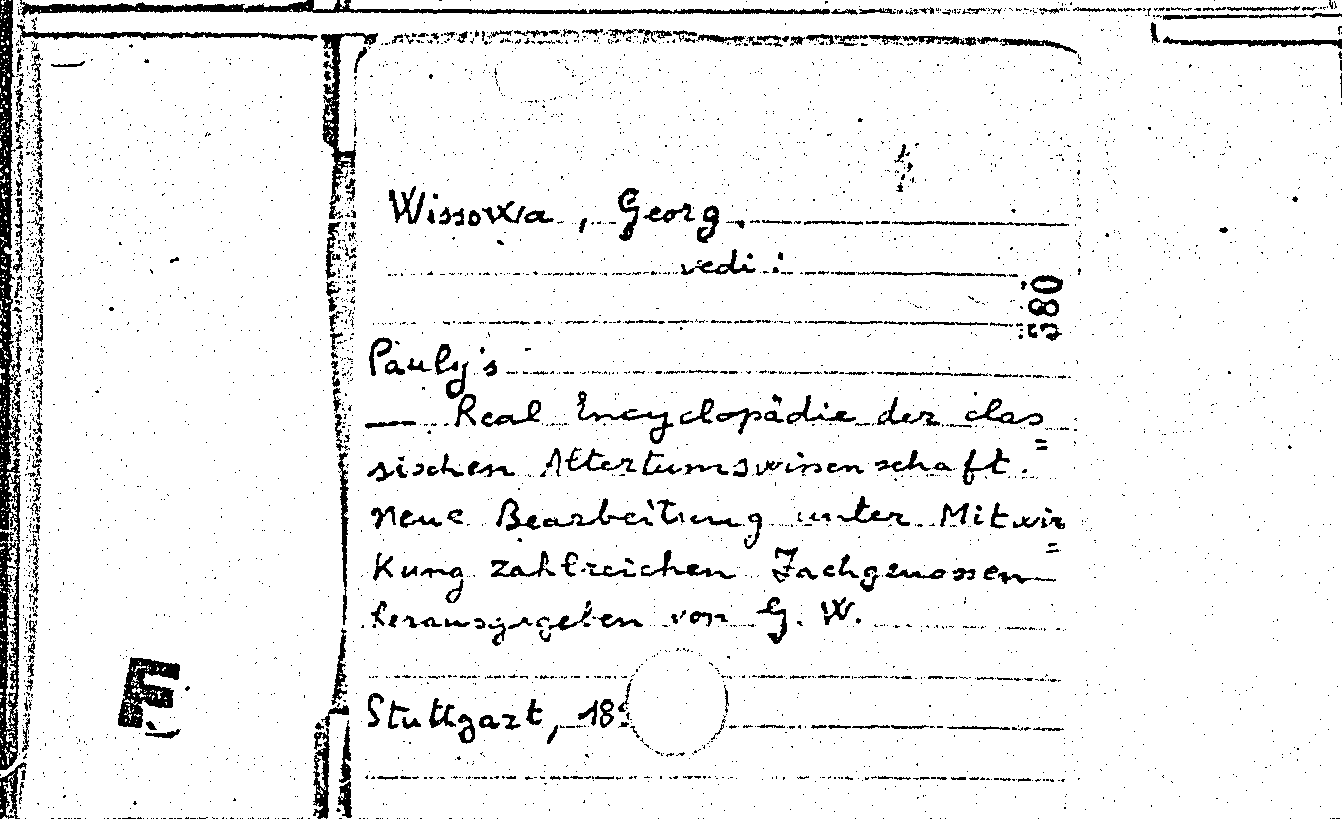 Wissowa, Georg.
vedi:
580
Pauly's
— Real Encyclopädie der clas=
sischen Altertumswissenschaft.
Neue Bearbeitung unter Mitwir=
Kung zahlreichen Fachgenossen
herausgegeben von G. W.
Stuttgart, 18
E